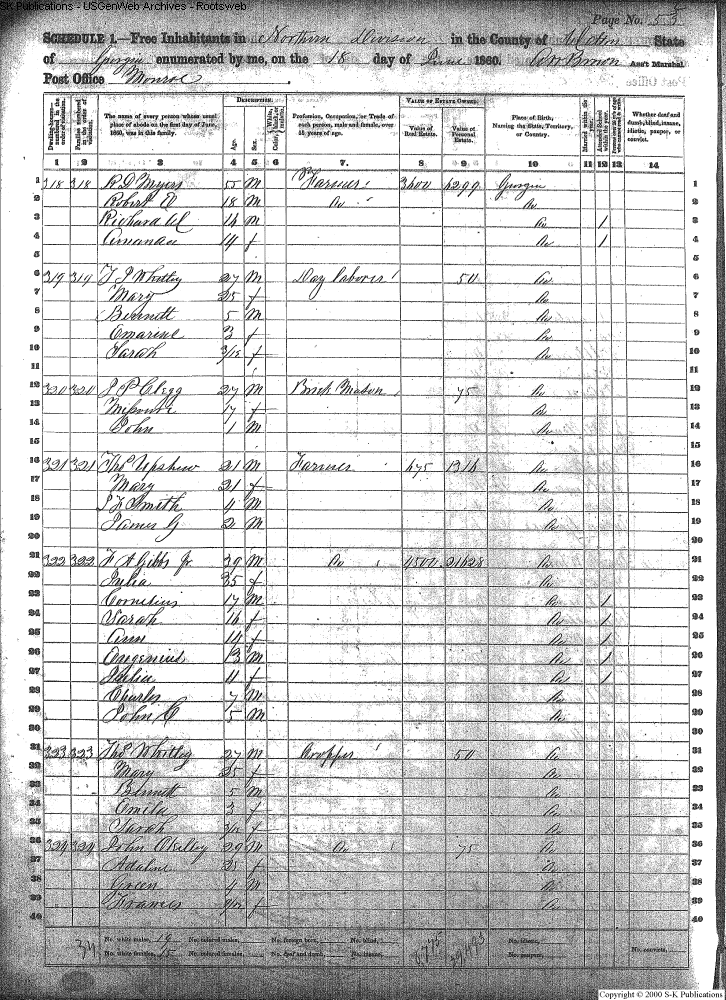 S-K Publications - USGenWeb Archives - Rootsweb
Page No. 53
SCHEDULE 1.—Free Inhabitants in Northern Division in the County of Walton State
of Georgia enumerated by me, on the 18 day of June 1860. Ass't Marshal
Post Office Monroe
DESCRIPTION. VALUE OF ESTATE OWNED.
Dwelling-houses—numbered in the order of visitation. Families numbered in the order of visitation. The name of every person whose usual place of abode on the first day of June, 1860, was in this family. Age. Sex. Color, White, black, or mulatto. Profession, Occupation, or Trade of each person, male and female, over 15 years of age. Value of Real Estate. Value of Personal Estate. Place of Birth, Naming the State, Territory, or Country. Married within the year. Attended School within the year. Whether deaf and dumb, blind, insane, idiotic, pauper, or convict.
1 2 3 4 5 6 7 8 9 10 11 12 13 14
1 318 318 R D Myers 55 M Farmer 3600 6299 Georgia 1
2 Robert 18 M Do Do 2
3 Richard M 16 M Do 1 3
4 14 f Do 1 4
5 5
6 319 319 T J Whitley 27 M Day laborer 50 Do 6
7 Mary 25 f Do 7
8 Bennett 5 M Do 8
9 Emarine 3 f Do 9
10 Sarah 3/12 f Do 10
11 11
12 320 320 J P Clegg 27 M Brick Mason 75 Do 12
13 Missouri 17 f Do 13
14 John 1 M Do 14
15 15
16 321 321 Thos Upshaw 21 M Farmer 675 1316 Do 16
17 Mary 21 f Do 17
18 Smith 4 M Do 18
19 James G 2 M Do 19
20 20
21 322 322 Gibbs Jr 39 M Do 4500 21628 Do 21
22 Julia 35 f Do 22
23 Cornelius 17 M Do 1 23
24 Sarah 16 f Do 1 24
25 Ann 14 f Do 1 25
26 13 M Do 1 26
27 Julia 11 f Do 1 27
28 Charles 7 M Do 28
29 John C 5 M Do 29
30 30
31 323 323 Thos Whitley 27 M Cropper 50 Do 31
32 Mary 25 f Do 32
33 Bennett 5 M Do 33
34 Emila 3 f Do 34
35 Sarah 3/12 f Do 35
36 324 324 John Okelley 29 M Do 75 Do 36
37 Adaline 25 f Do 37
38 Green 4 M Do 38
39 Frances 9/12 f Do 39
40 40
34 No. white males, 19 No. colored males, No. foreign born, No. blind, No. idiotic, No. convicts,
No. white females, 15 No. colored females, No. deaf and dumb, No. insane, No. paupers,
Copyright © 2000 S-K Publications